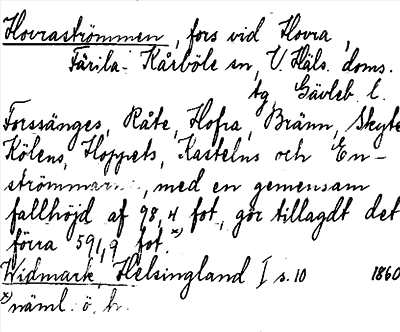 Hovraströmmen, fors vid Hovra,
Färila-Kårböle sn, V. Häls. doms.
tg, Gävleb. l.
Forssänges, Råte, Hofra, Bränn, Skyte
Kölens, Hoppets, Kastelns och En-
strömmarna, med en gemensam
fallhöjd af 98,4 fot, gör tillagdt det
förra 591,9 fot. x)
Widmark, Helsingland I s. 10 1860
x) näml. ö. h.